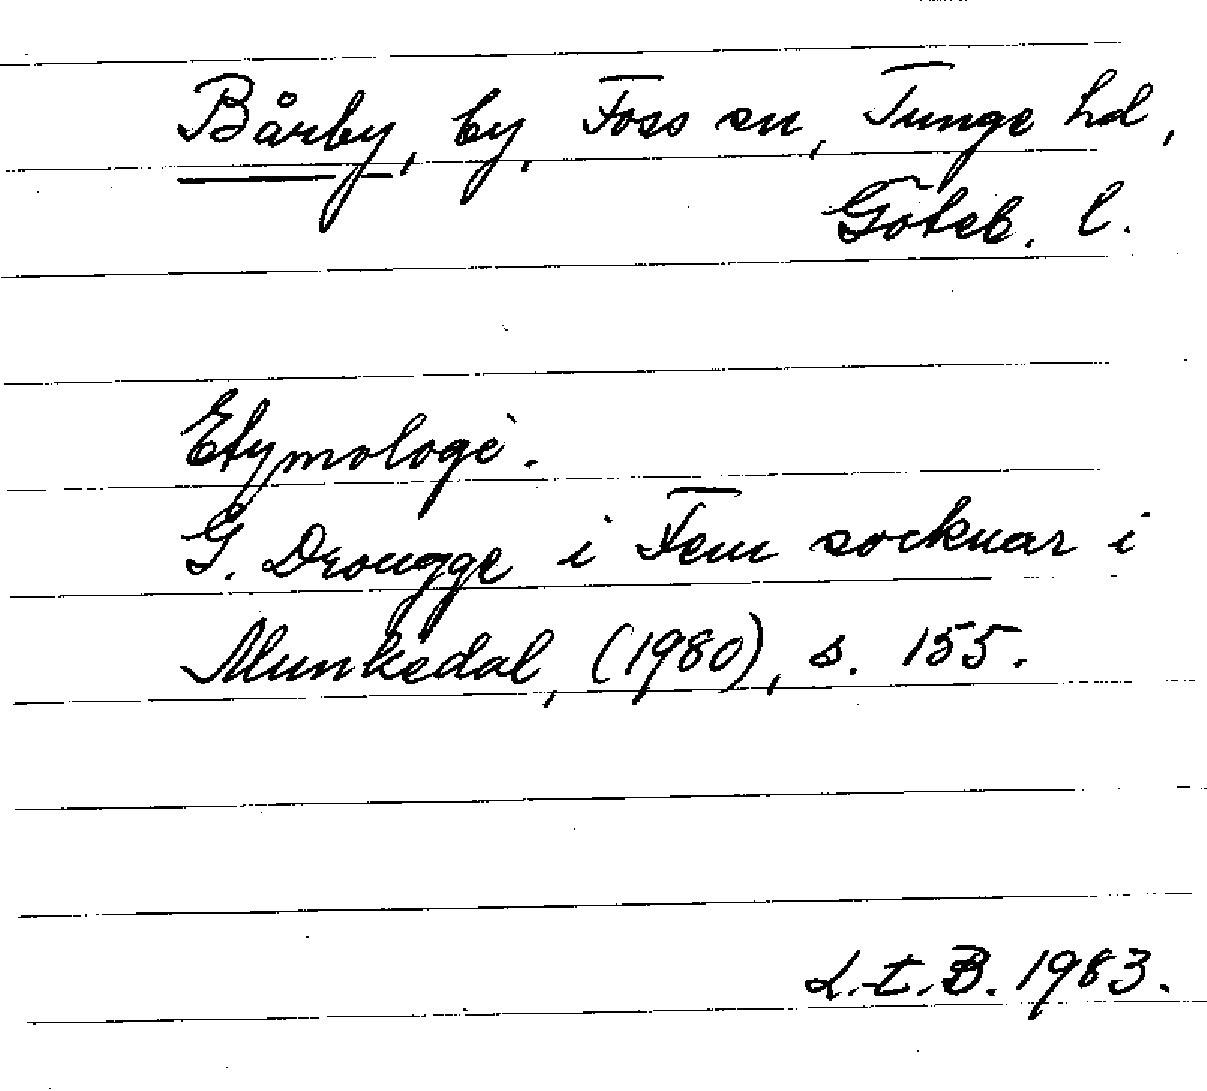 Bårby, by, Foss sn, Tunge hd,
Göteb. l.
Etymologi.
G. Drougge i Fem socknar i
Munkedal, (1980), s. 155.
L.t.B. 1983.